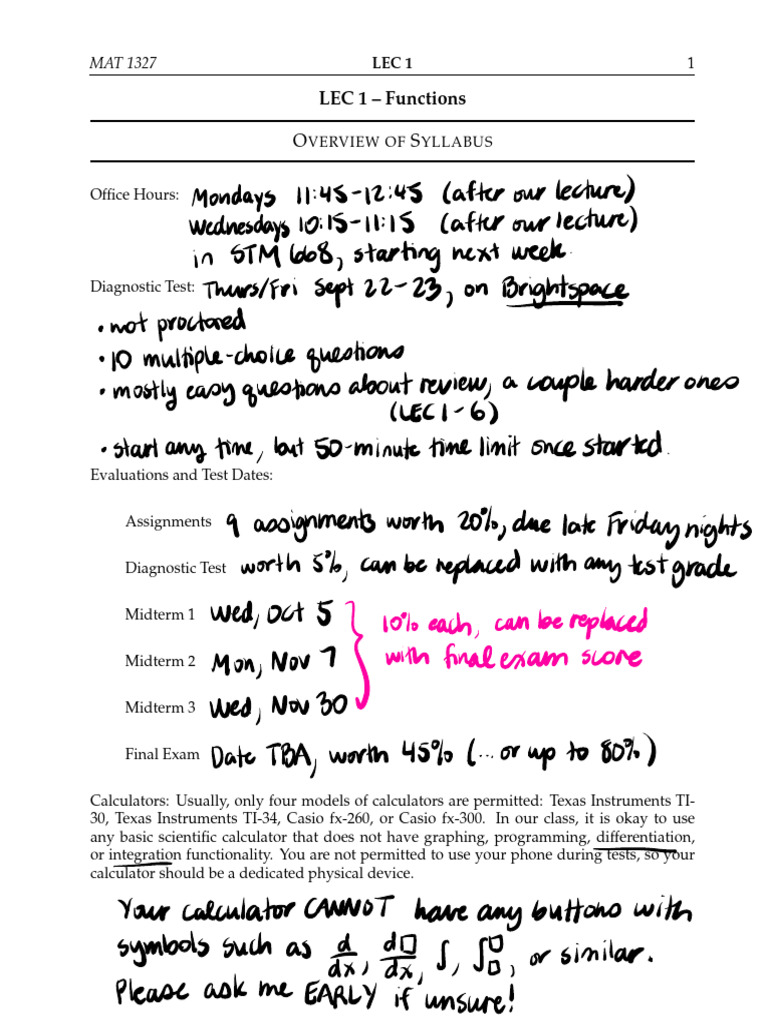 MAT 1327 LEC 1 1
LEC 1 – Functions
OVERVIEW OF SYLLABUS
Office Hours: Mondays 11:45-12:45 (after our lecture)
Wednesdays 10:15-11:15 (after our lecture)
in STM 668, starting next week.
Diagnostic Test: Thurs/Fri Sept 22-23, on Brightspace
• not proctored
• 10 multiple-choice questions
• mostly easy questions about review, a couple harder ones
(LEC 1-6)
• start any time, but 50-minute time limit once started.
Evaluations and Test Dates:
Assignments 9 assignments worth 20%, due late Friday nights
Diagnostic Test worth 5%, can be replaced with any test grade
Midterm 1 Wed, Oct 5
10% each, can be replaced
Midterm 2 Mon, Nov 7
with final exam score
Midterm 3 Wed, Nov 30
Final Exam Date TBA, worth 45% (...or up to 80%)
Calculators: Usually, only four models of calculators are permitted: Texas Instruments TI-
30, Texas Instruments TI-34, Casio fx-260, or Casio fx-300. In our class, it is okay to use
any basic scientific calculator that does not have graphing, programming, differentiation,
or integration functionality. You are not permitted to use your phone during tests, so your
calculator should be a dedicated physical device.
Your calculator CANNOT have any buttons with
symbols such as d/dx, d□/dx, ∫, ∫□□, or similar.
Please ask me EARLY if unsure!